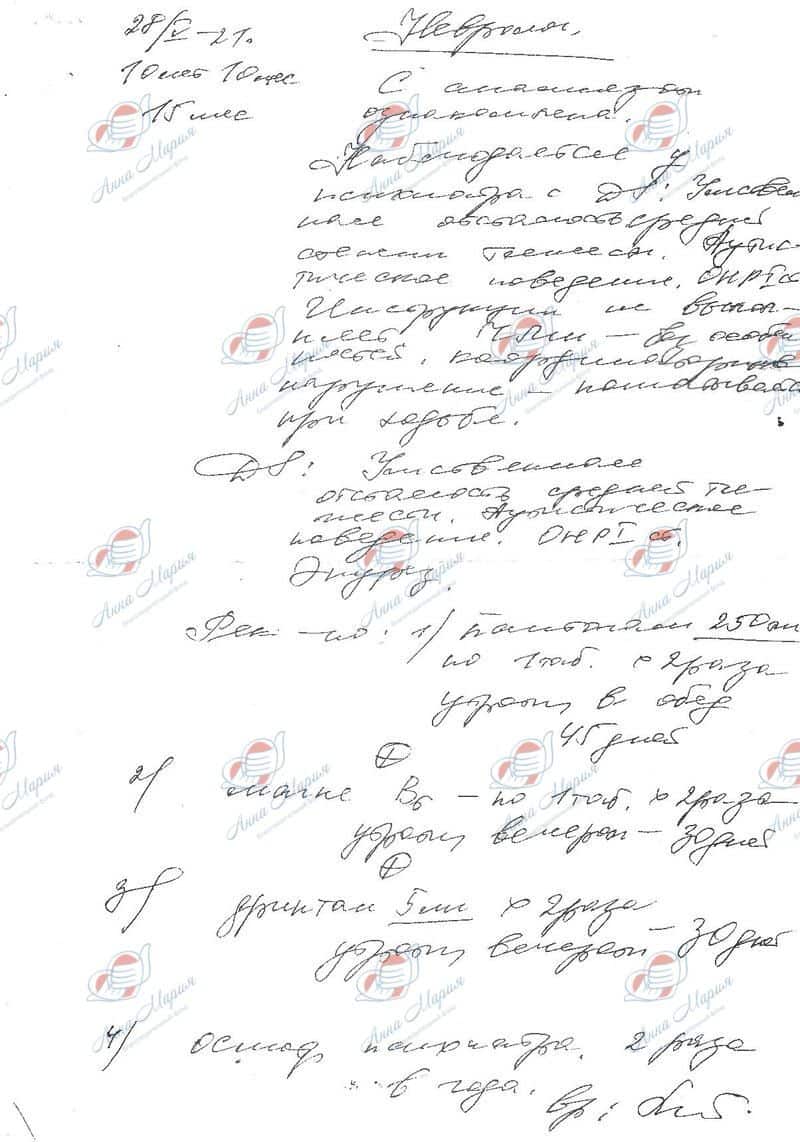 28/V – 21г.
Невролог.
10 лет 10 мес
15 мес
С анамнезом
ознакомлена.
Наблюдается у
психиатра с DS: Умствен
ная отсталость средней
степени тяжести. Аутис-
тическое поведение. ОНР I ст
Инструкции не выпол-
няет ЧМН – без особен
ностей. координаторные
нарушение – пошатывает
при ходьбе.
DS: Умственная
отсталость средней тя-
жести. Аутистическое
поведение. ОНР I ст.
Энурез.
Рек-но: 1) Пантогам 250
по 1 таб. x 2 раза
утром, в обед
45 дней
+
2) магне B6 – по 1 таб. x 2 раза
утром, вечером – 30 дней
+
3) 5 мл x 2 раза
утром, вечером – 30 дней
4) осмотр психиатра 2 раза
в года.
вр:
Анна Мария
Благотворительный фонд